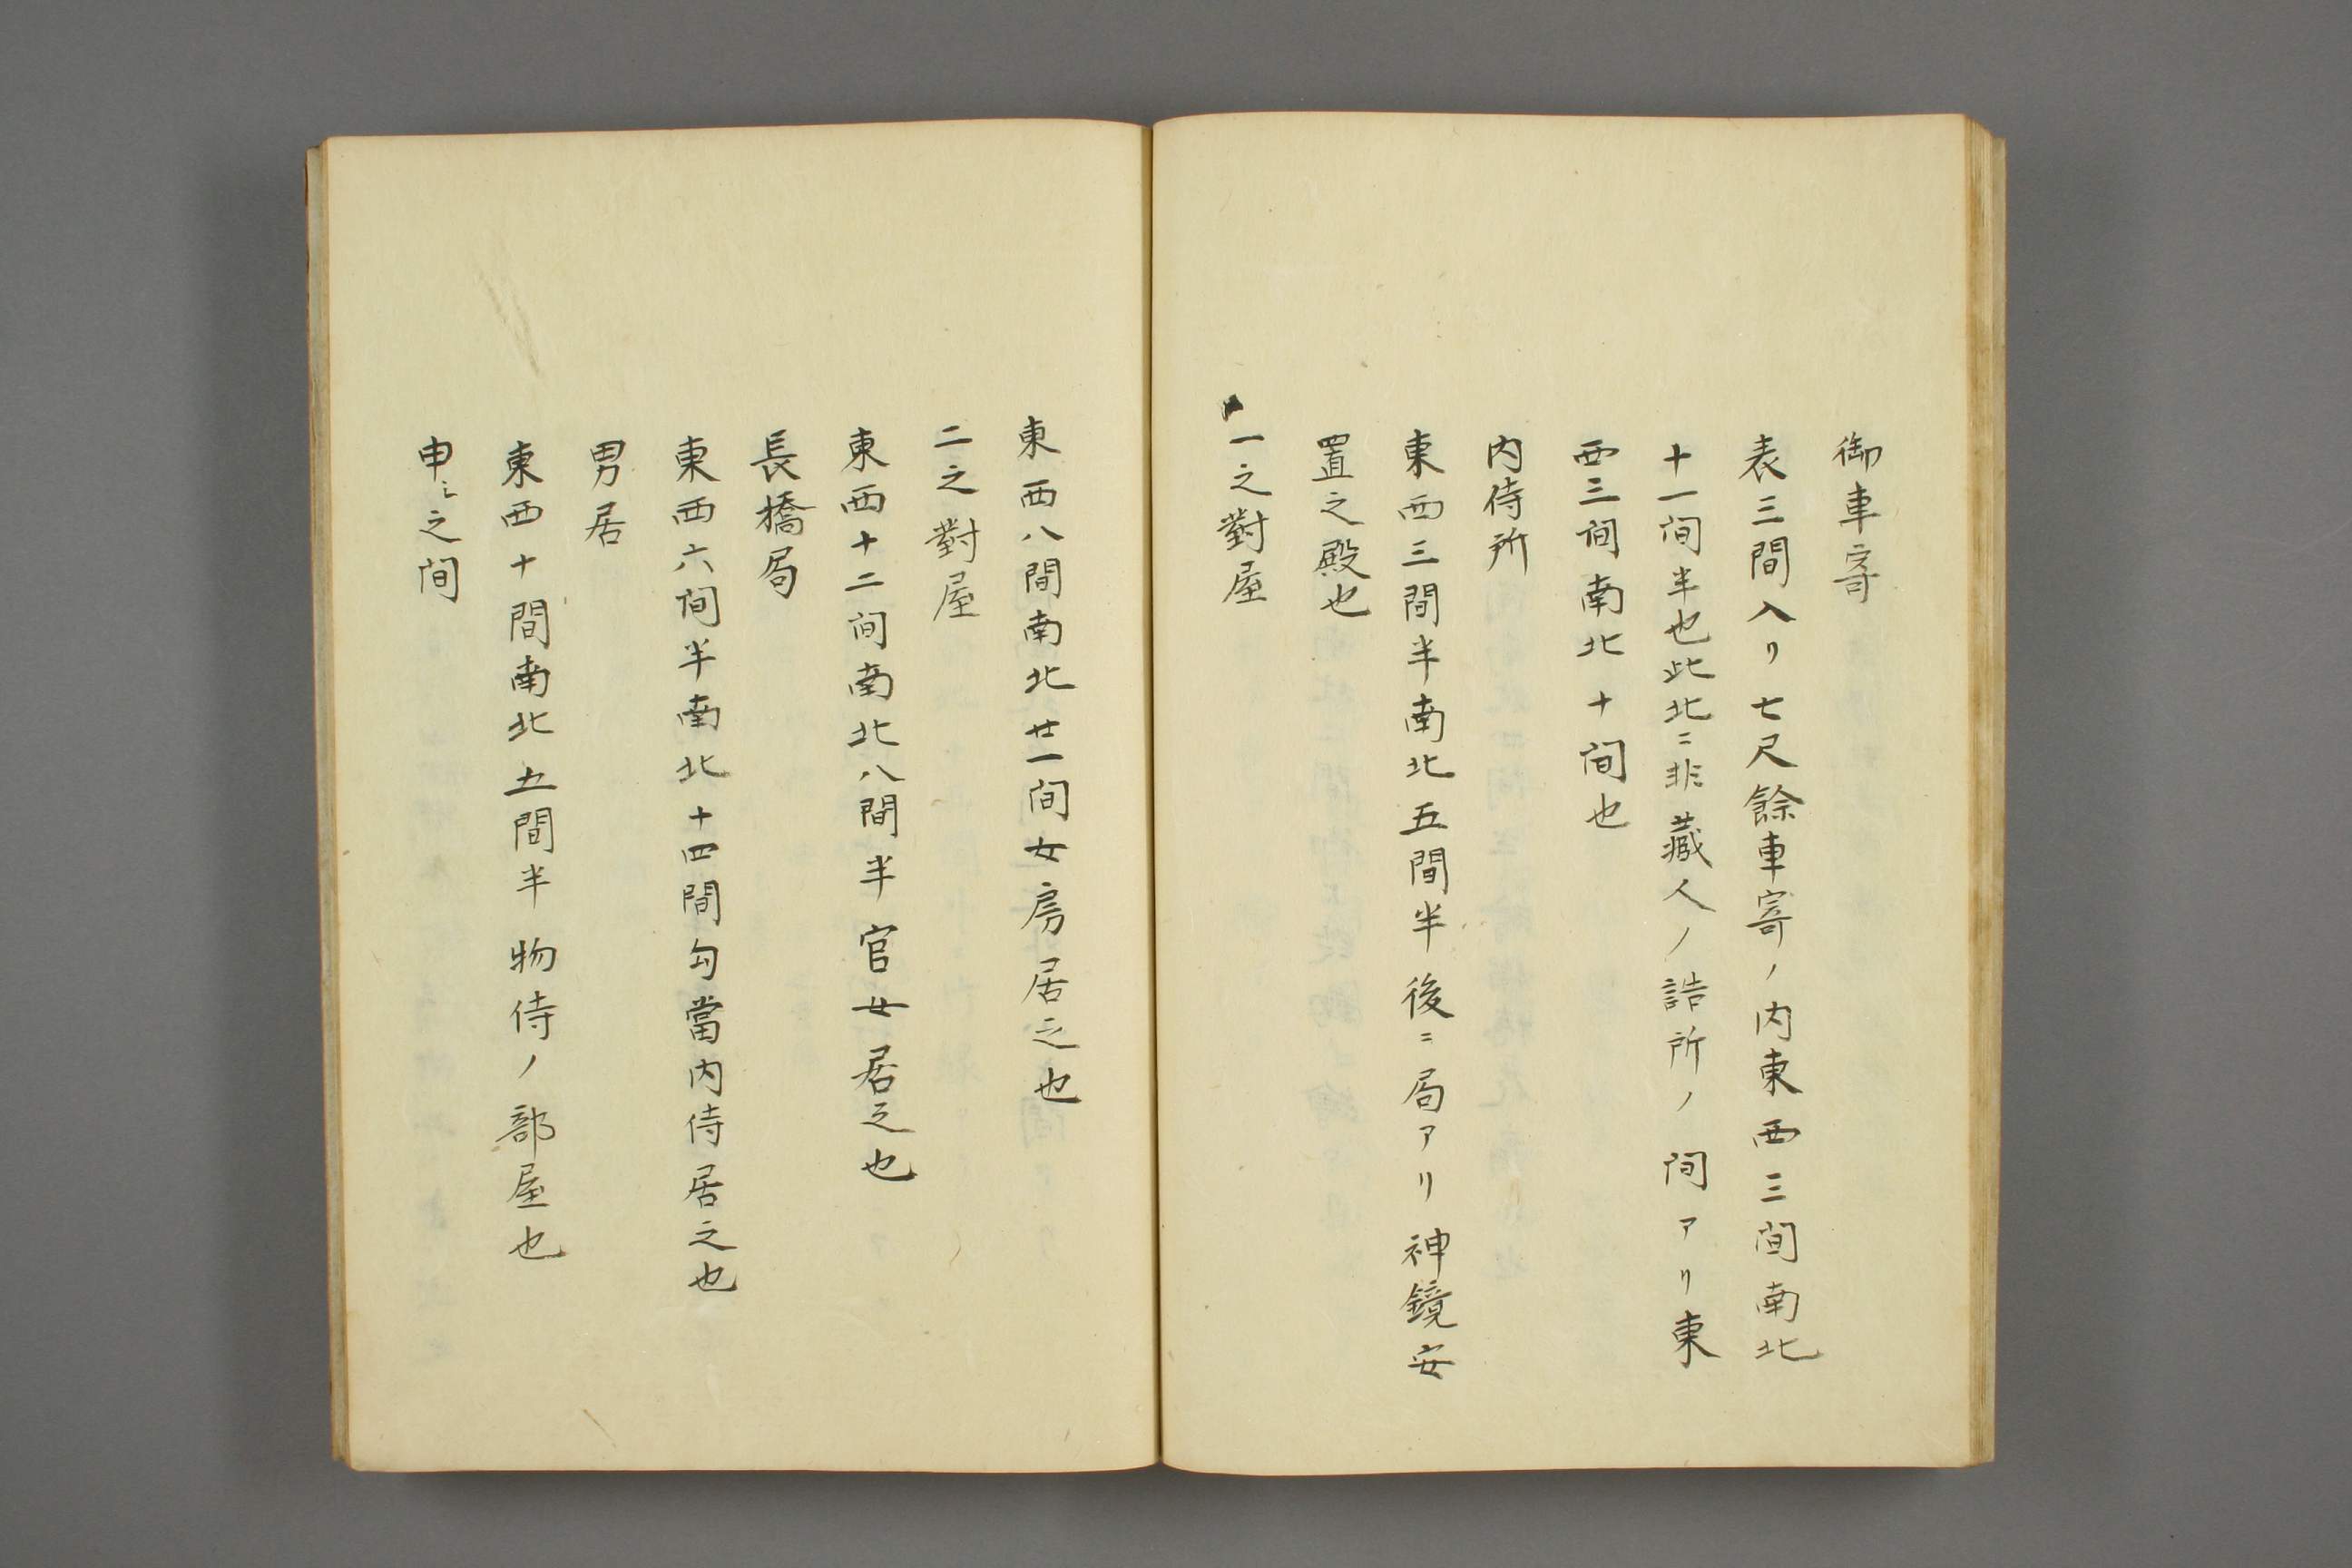 御車寄
表三間入リ七尺餘車寄ノ内東西三間南北
十一间半也此北ニ非藏人ノ誥所ノ间アリ東
西三间南北十间也
内侍所
東西三間半南北五間半後ニ局アリ神鏡安
置之殿也
一之對屋
東西八間南北廿一间女房居之也
二之對屋
東西十二间南北八間半官女居之也
長橋局
東西六间半南北十四間勾當内侍居之也
男居
東西十間南北五間半物侍ノ部屋也
申ミ之间